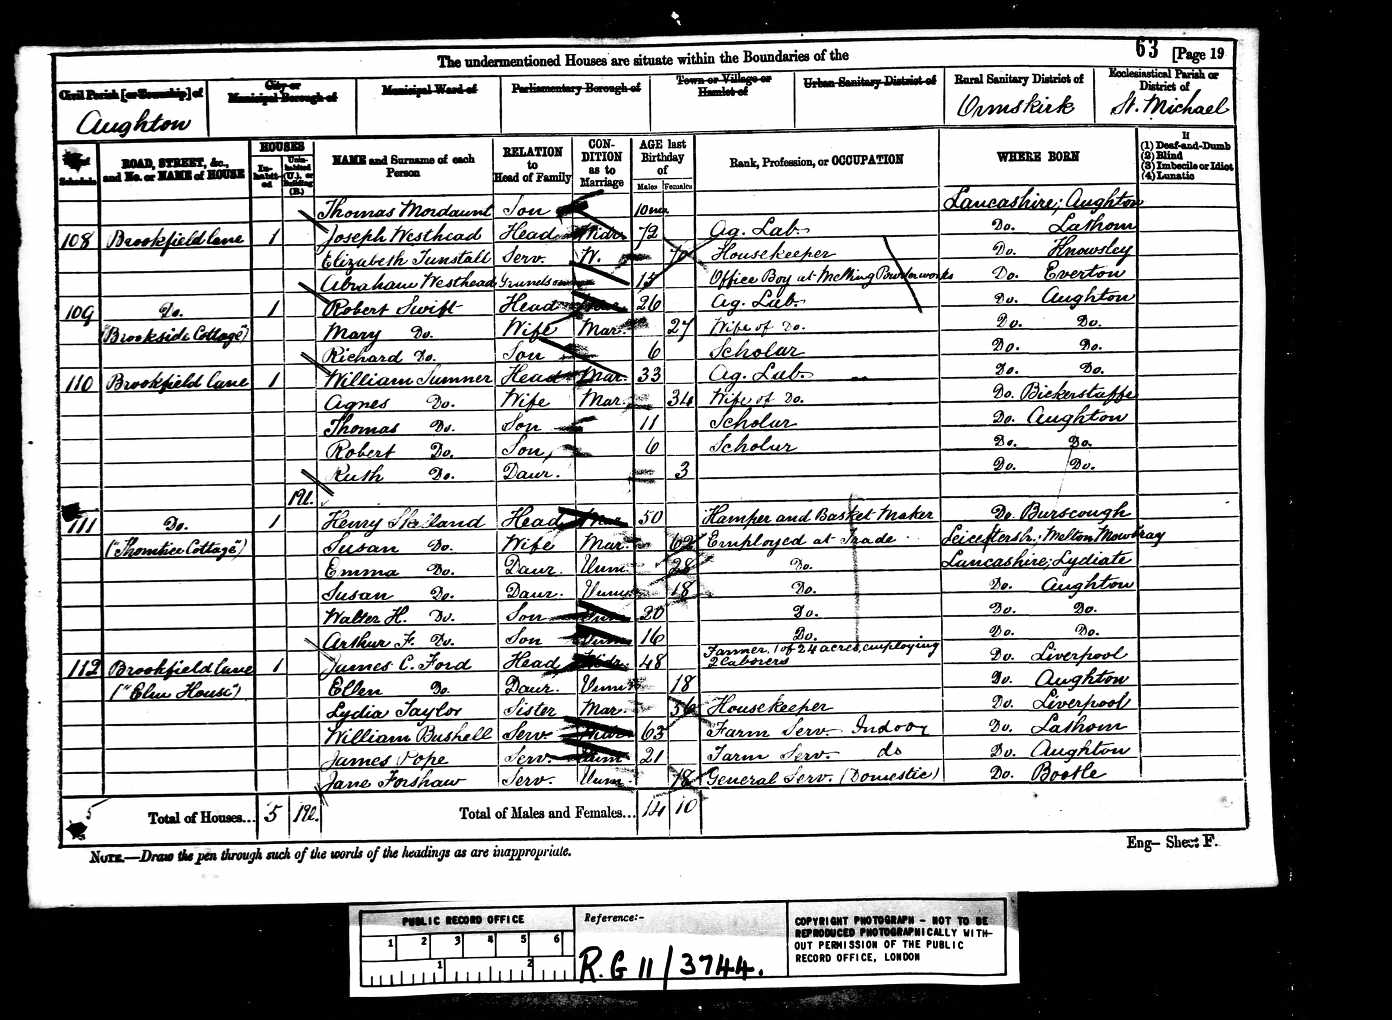 63 [Page 19
The undermentioned Houses are situate within the Boundaries of the
Civil Parish [or Township] of
Aughton
City or Municipal Borough of
Municipal Ward of
Parliamentary Borough of
Town or Village or Hamlet of
Urban Sanitary District of
Rural Sanitary District of
Ormskirk
Ecclesiastical Parish or District of
St. Michael
Schedule
ROAD, STREET, &c., and No. or NAME of HOUSE
HOUSES
Inhabited
Uninhabited (U.), or Building (B.)
NAME and Surname of each Person
RELATION to Head of Family
CONDITION as to Marriage
AGE last Birthday of
Males Females
Rank, Profession, or OCCUPATION
WHERE BORN
If
(1) Deaf-and-Dumb
(2) Blind
(3) Imbecile or Idiot
(4) Lunatic
Thomas Mordaunt Son 10 mo. Lancashire; Aughton
108 Brookfield Lane 1 Joseph Westhead Head Widr. 72 Ag. Lab. Do. Lathom
Elizabeth Tunstall Serv. W. 70 Housekeeper Do. Knowsley
Abraham Westhead Grandson 15 Office Boy at Powderworks Do. Everton
109 Do. 1 Robert Swift Head 26 Ag. Lab. Do. Aughton
("Brookside Cottage") Mary Do. Wife Mar. 27 Wife of Do. Do. Do.
Richard Do. Son 6 Scholar Do. Do.
110 Brookfield Lane 1 William Sumner Head Mar. 33 Ag. Lab. Do. Do.
Agnes Do. Wife Mar. 34 Wife of Do. Do. Bickerstaffe
Thomas Do. Son 11 Scholar Do. Aughton
Robert Do. Son 6 Scholar Do. Do.
Ruth Do. Daur. 3 Do. Do.
1U.
111 Do. 1 Henry Head Mar. 50 Hamper and Basket Maker Do. Burscough
Cottage") Susan Do. Wife Mar. 62 Employed at Trade Leicestersh.; Melton Mowbray
Emma Do. Daur. Unm. 28 Do. Lancashire; Lydiate
Susan Do. Daur. Unm. 18 Do. Do. Aughton
Walter H. Do. Son Unm. 20 Do. Do. Do.
Arthur F. Do. Son Unm. 16 Do. Do. Do.
112 Brookfield Lane 1 James C. Ford Head Widr. 48 Farmer of 24 acres, employing 2 laborers Do. Liverpool
("Elm House") Ellen Do. Daur. Unm. 18 Do. Aughton
Lydia Taylor Sister Mar. 56 Housekeeper Do. Liverpool
William Bushell Serv. Widr. 63 Farm Serv. Indoor Do. Lathom
James Pope Serv. Unm. 21 Farm Serv. do Do. Aughton
Jane Forshaw Serv. Unm. 18 General Serv. (Domestic) Do. Bootle
5
Total of Houses... 5 1U. Total of Males and Females... 14 10
NOTE.—Draw the pen through such of the words of the headings as are inappropriate.
Eng– Sheet F.
PUBLIC RECORD OFFICE
1 2 3 4 5 6
1 2
Reference:-
R.G 11/3744.
COPYRIGHT PHOTOGRAPH - NOT TO BE
REPRODUCED PHOTOGRAPHICALLY WITH-
OUT PERMISSION OF THE PUBLIC
RECORD OFFICE, LONDON